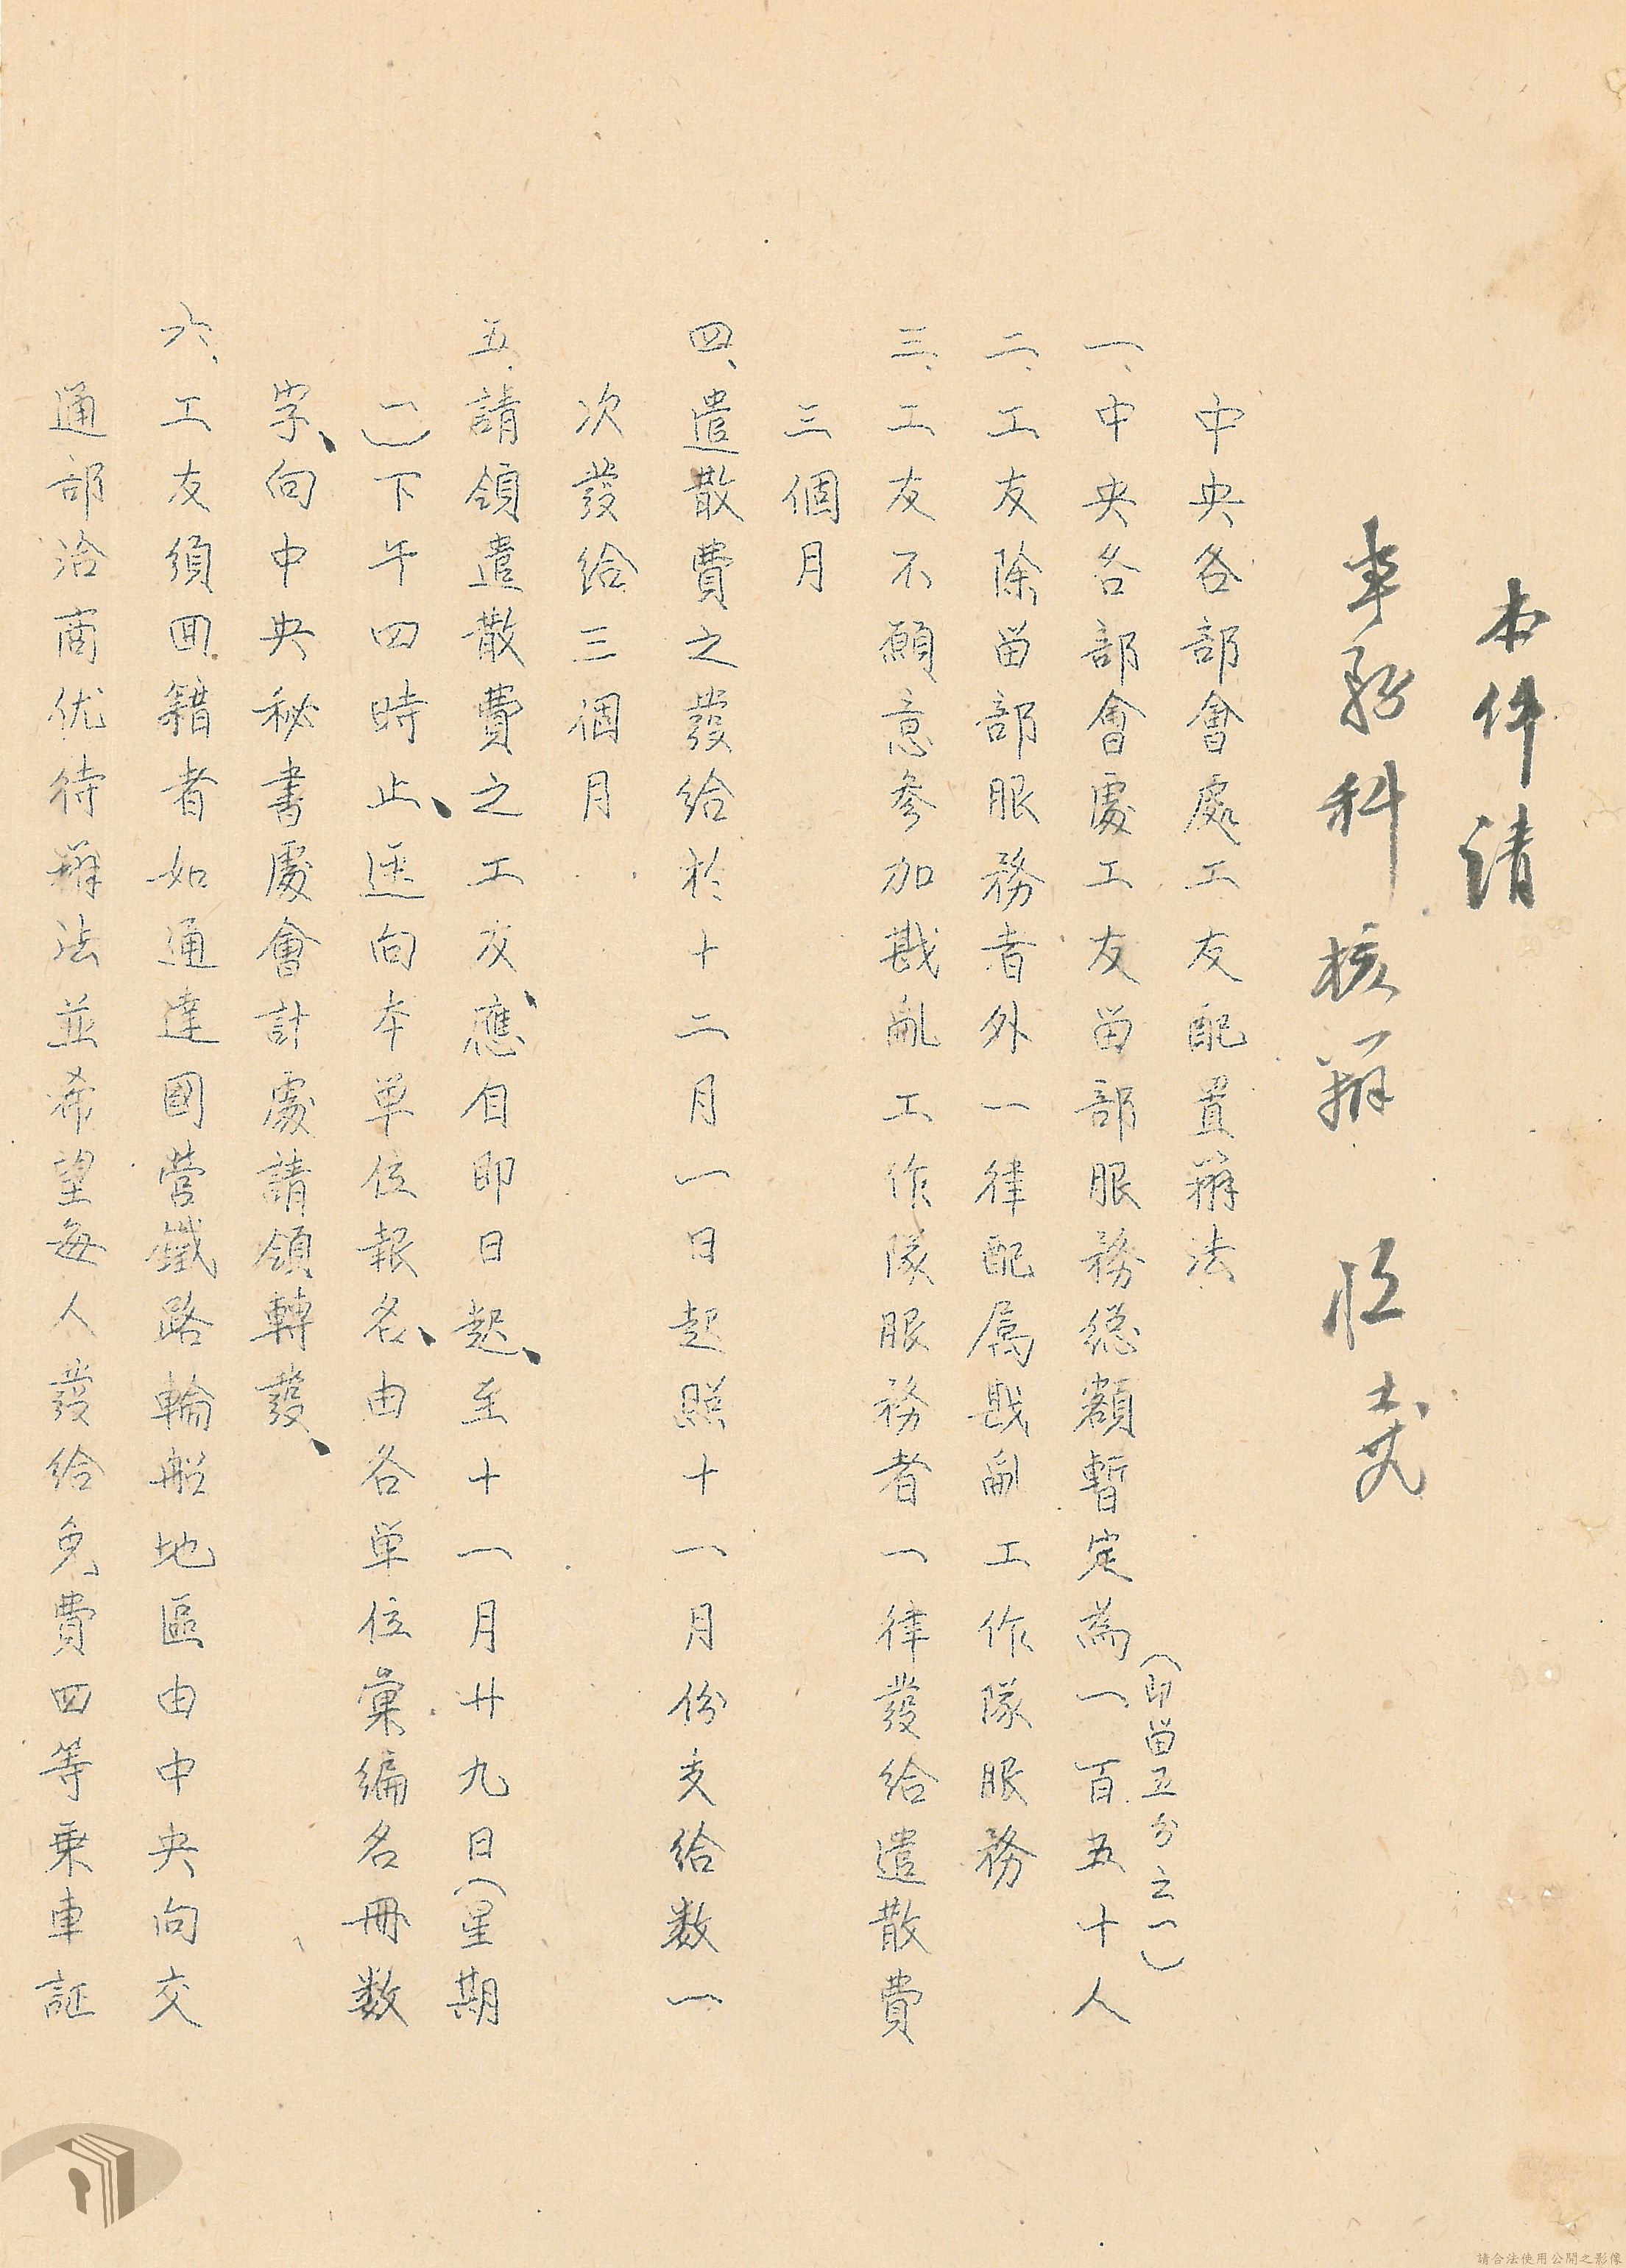 本件請
事務科核辦
中央各部會處工友配置辦法
一、中央各部會處工友留部服務總額暫定為一百五十人
（即留五分之一）
二、工友除留部服務者外一律配屬戡亂工作隊服務
三、工友不願意參加戡亂工作隊服務者一律發給遣散費
三個月
四、遣散費之發給於十二月一日起照十一月份支給数一
次發給三個月
五、請領遣散費之工友、應自即日起、至十一月廿九日（星期
一）下午四時止、逕向本单位報名、由各单位彙編名冊数
字、向中央秘書處會計處請領轉發、
六、工友須囬籍者如通達國营鐵路輪船地區由中央向交
通部洽商优待辦法並希望每人發給免費四等乘車証
請合法使用公開之影像